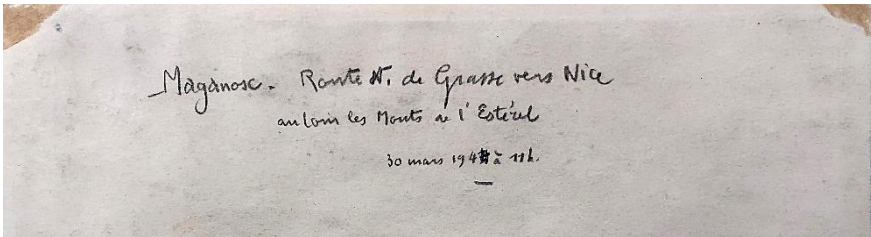 Maganosc. Route N. de Grasse vers Nice
au loin les Monts de l'Estérel
30 mars 194 à 11h.